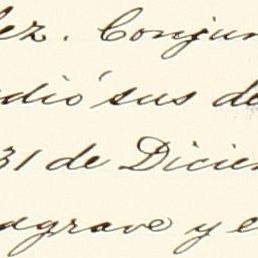 lez. Conjun
edió sus de
31 de Dicie
agrave y e